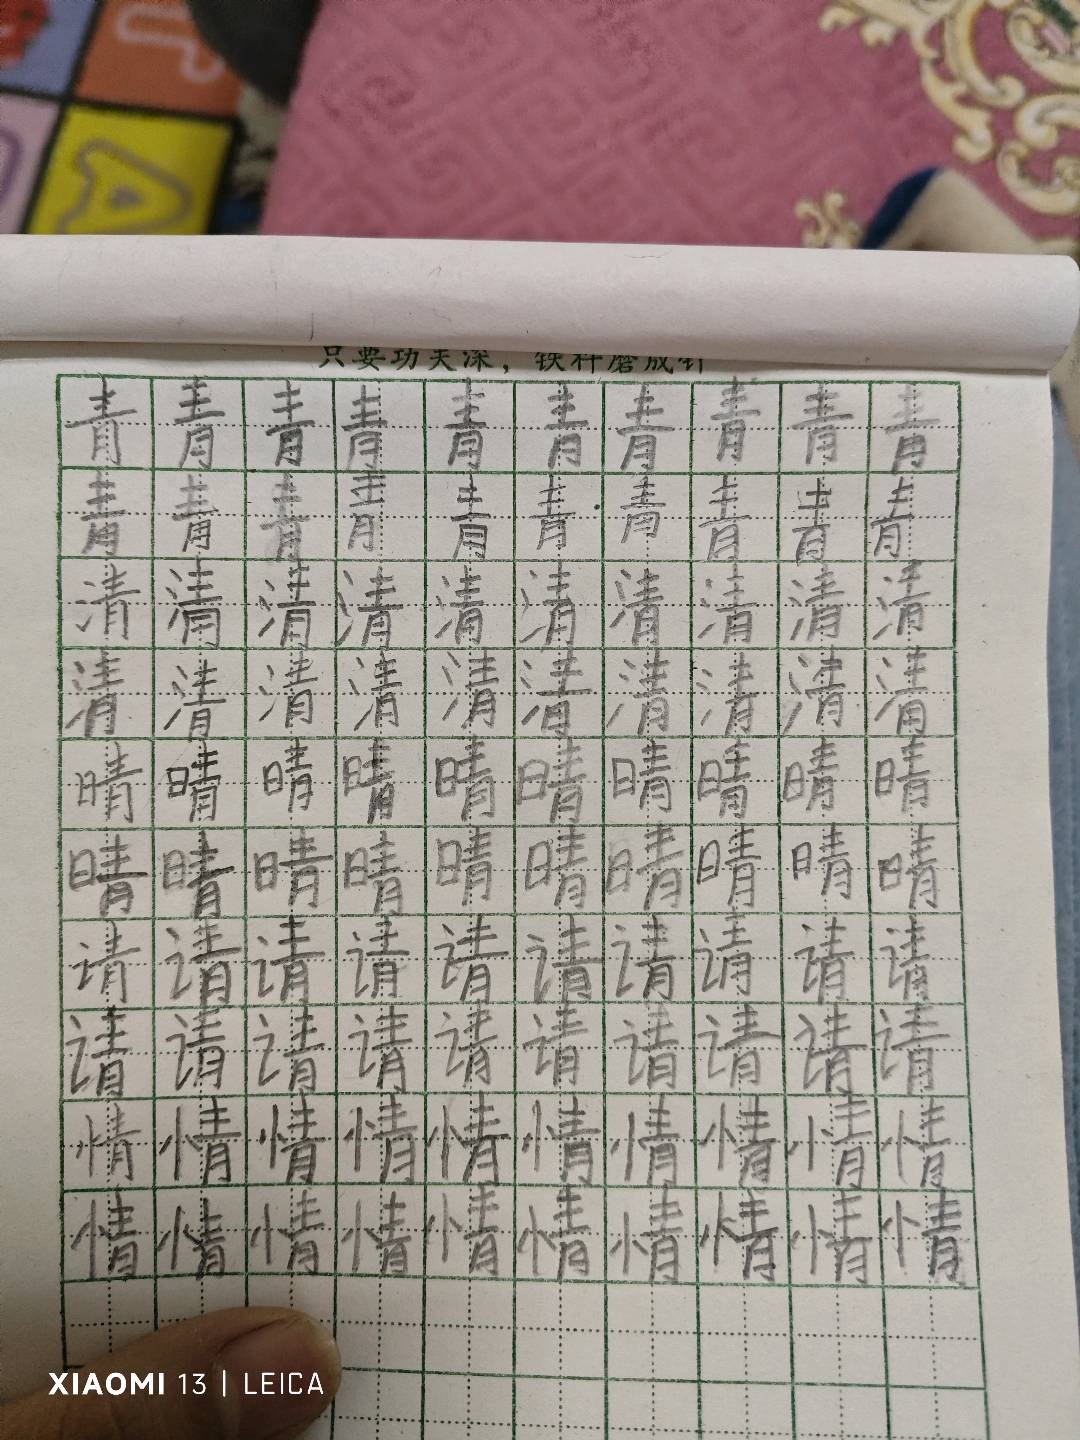 A
只要功夫深，铁杵磨成针
青青青青青青青青青青
青青青青青青青青青青
清清清清清清清清清清
清清清清清清清清清清
晴晴晴晴晴晴晴晴晴晴
晴晴晴晴晴晴晴晴晴晴
请请请请请请请请请请
请请请请请请请请请请
情情情情情情情情情情
情情情情情情情情情情
XIAOMI 13 | LEICA